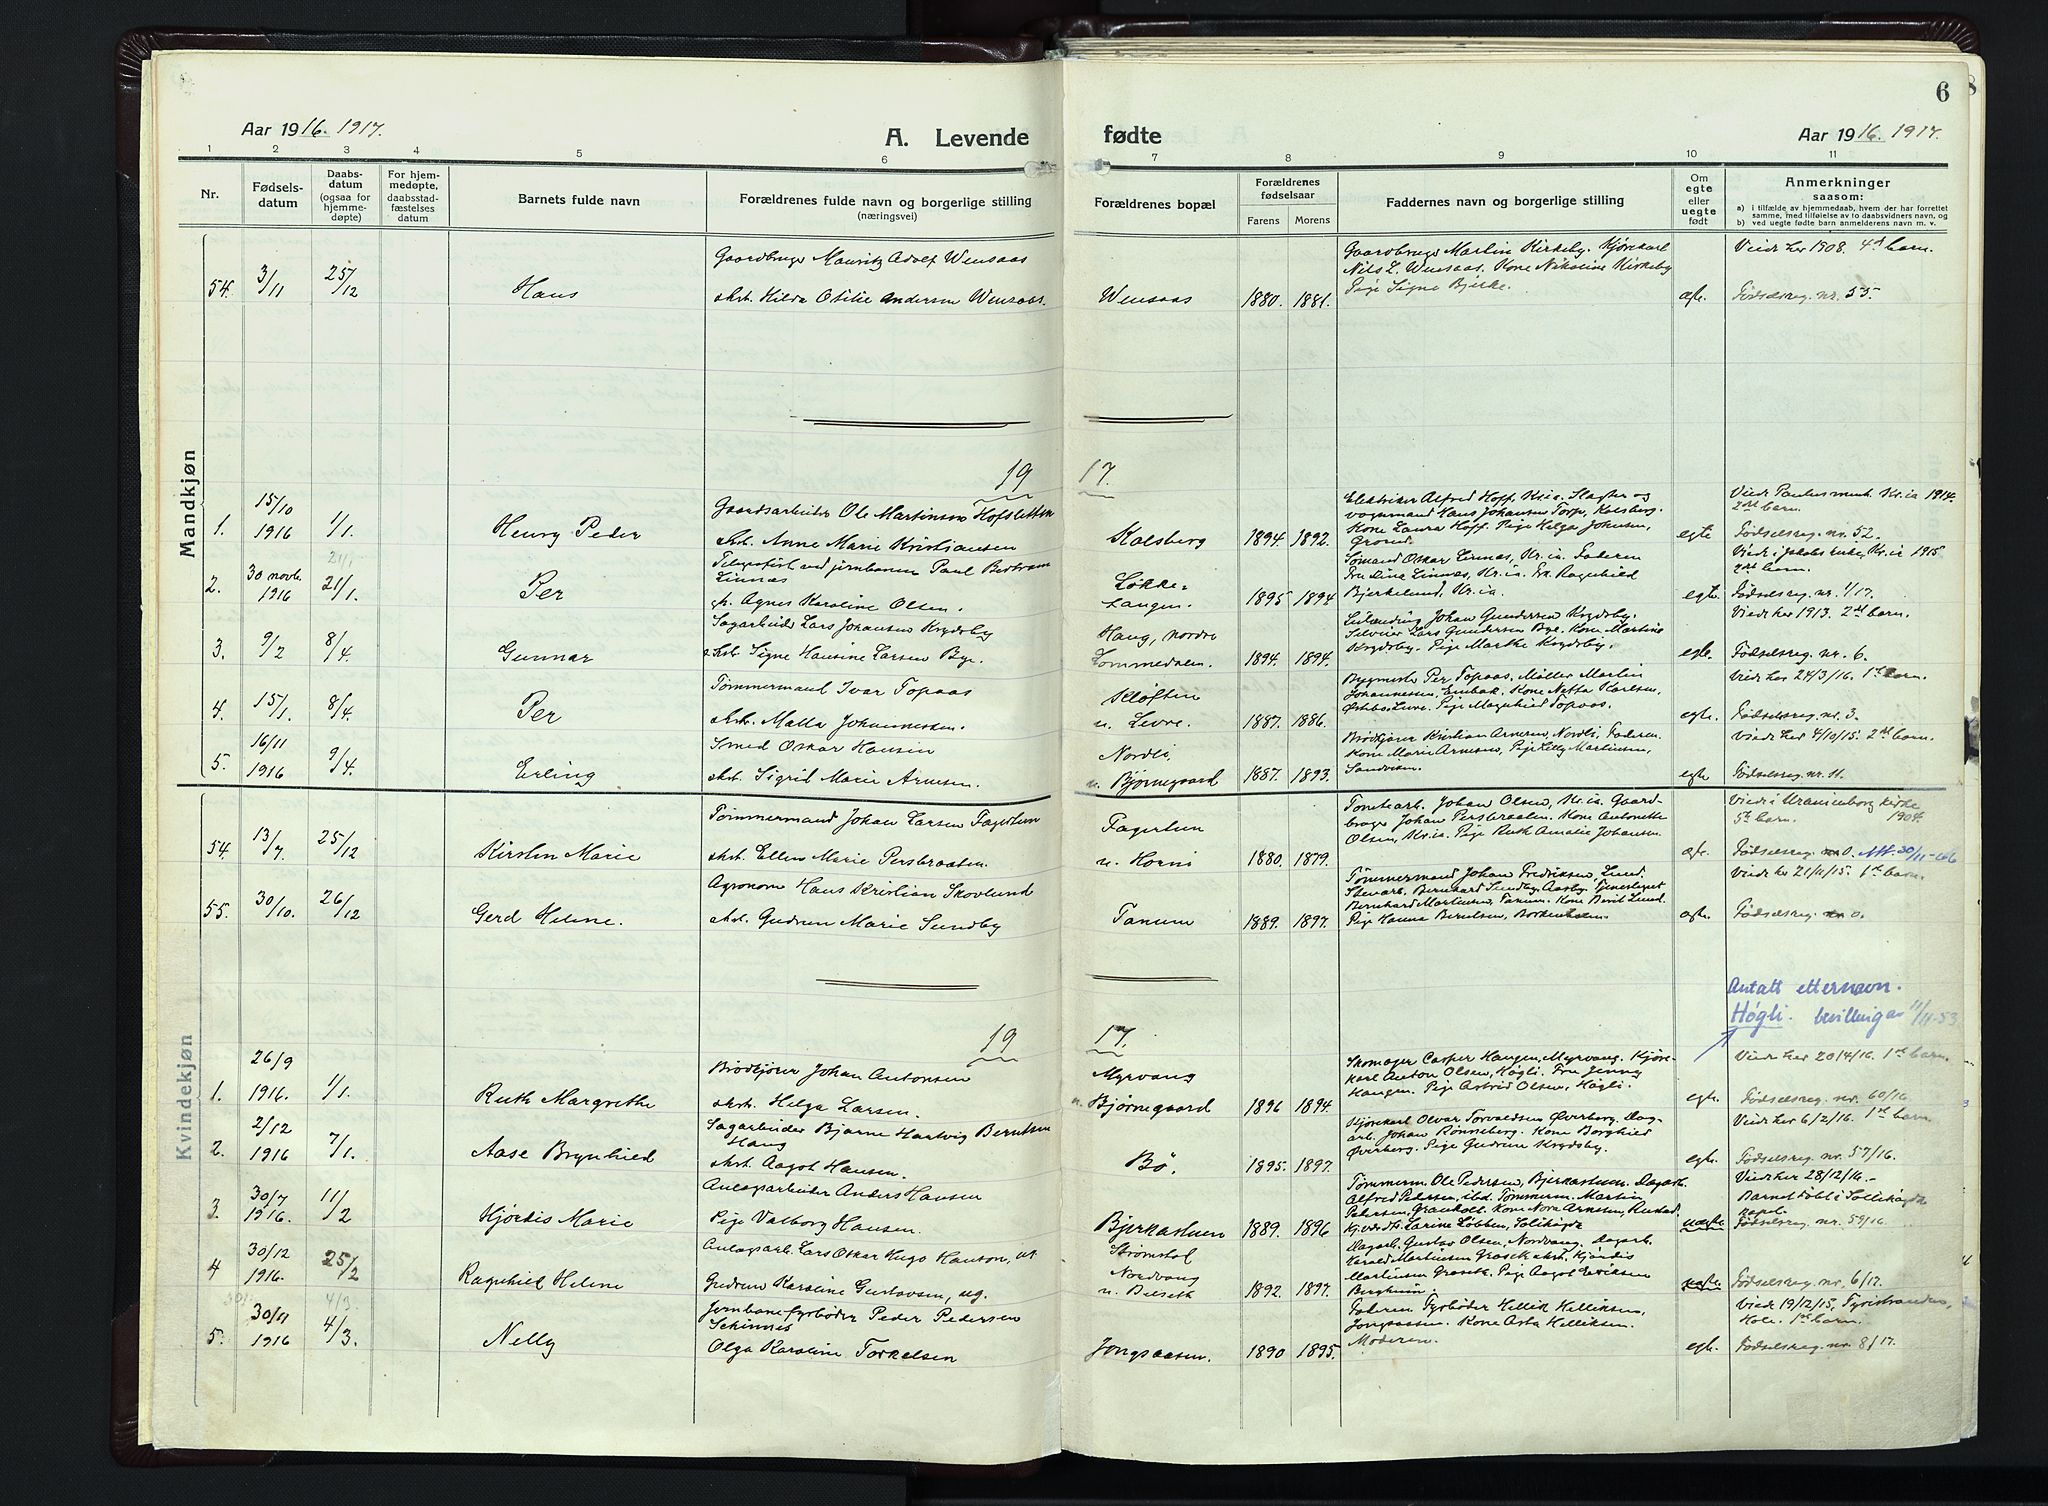 6
Aar 1916. 1917.
A. Levende
fødte
Aar 1916. 1917.
1 2 3 4 5 6 7 8 9 10 11
Nr.
Fødsels-
datum
Daabs-
datum
(ogsaa for
hjemme-
døpte)
For hjem-
medøpte,
daabsstad-
fæstelses
datum
Barnets fulde navn
Forældrenes fulde navn og borgerlige stilling
(næringsvei)
Forældrenes bopæl
Forældrenes
fødselsaar
Farens Morens
Faddernes navn og borgerlige stilling
Om
egte
eller
uegte
født
Anmerkninger
saasom:
a) i tilfælde av hjemmedaab, hvem der har forrettet
samme, med tilføielse av to daabsvidners navn, og
b) ved uegte fødte barn anmelderens navn m. v.
Mandkjøn
54. 3/11 25/12 Hans
Gaardbruger Mauritz Adolf Wensaas
Hilda Otilie Andersen Wensaas.
Wensaas 1880. 1881.
Gaardbruger Martin Kirkeby. Kjørekarl
Nils L. Wensaas. Kone Nikoline Kirkeby
Pige Signe Bjerke.
egte.
Viede her 1908. 4d barn.
Fødselsreg. nr. 55.
19 17.
1. 15/10 1916 1/1. Henry Peder
Gaardsarbeider Ole Martinsen Hofsletten
Anne Marie Kristiansen
Kolsberg 1894. 1892.
Elektriker Alfred Hoff, Kr.ia. Slagter og
vognmand Hans Johansen Torp, Kolsberg.
Kone Laura Hoff. Pige Helga Johnsen,
egte
Viede Paulus menh. Kr.ia 1914.
2det barn.
Fødselsreg. nr. 52.
2. 30 novb. 1916 21/1. Per
Telegrafist ved jernbanen Paul Bertram
Linnæs
Agnes Karoline Olsen.
Løkke-
Langen. 1895 1894
Sømand Oskar Linnæs, Kr.ia. Faderen
Fru Lina Linnæs, Kr.ia. Frk. Ragnhild
Bjerkelund, Kr.ia.
egte.
Viede i Jakobs kirke, Kr.ia 1915
2det barn.
Fødselsreg. nr. 1/17.
3. 9/2 8/4. Gunnar
Sagarbeider Lars Johansen Krydsby
Signe Hansine Larsen Bye.
Haug, nordre
Lommedalen. 1894. 1894.
Johan Gundersen Krydsby.
Lars Gundersen Bye. Kone Martine
Krydsby. Pige Marthe Krydsby.
egte.
Viede her 1913. 2det barn.
Fødselsreg. nr. 6.
4. 15/1. 8/4. Per
Tømmermand Ivar Topaas
Matta Johannessen.
Kløften
u. Levre. 1887. 1886.
Bygmester Per Topaas. Møller Martin
Johannessen, Embak. Kone Netta Karlsen,
Pige Magnhild Topaas.
egte.
Viede her 24/3/16. 1ste barn.
Fødselsreg. nr. 3.
5. 16/11 1916 9/4. Erling
Smed Oskar Hansen
Sigrid Marie Arnesen.
Nordli,
u. Bjørnegaard 1887. 1893.
Brødkjører Kristian Arnesen, Nordli, Faderen.
Kone Marie Arnesen, Pige Lilly Martinsen,
Sandviken.
egte
Viede her 4/10/15. 2det barn.
Fødselsreg. nr. 11.
Kvindekjøn
54. 13/7 25/12 Kirsten Marie
Tømmermand Johan Larsen Fagertun
Ellen Marie Persbraaten.
Fagertun
u. Horni 1880. 1879.
Johan Olsen, Kr.ia. Gaard-
bruger Johan Persbraaten. Kone Antonette
Olsen, Kr.ia. Pige Ruth Amalie Johansen.
egte.
Viede i Uranienborg kirke
5te barn. 1904.
Fødselsreg. nr. 0. Att. 30/11-66
55. 30/10. 26/12 Gerd Helene.
Agronom Hans Kristian Skovlund
Gudrun Marie Sundby
Tanum 1889. 1897.
Tømmermand Johan Fredriksen, Lund.
Bernhard Sundby, Aasby.
Bernhard Martinsen, Tanum. Kone Berit Lund.
Pige Hanna Berntsen,
egte.
Viede her 21/11/15. 1ste barn.
Fødselsreg. nr. 0.
Antatt etternavn.
Høgli. bevillinga 11/11-53
19 17.
1. 26/9 1916. 1/1. Ruth Margrethe
Brødkjører Johan Antonsen
Helga Larsen.
Myrvang
u. Bjørnegaard 1896 1894.
Skomager Casper Haugen, Myrvang. Kjøre-
karl Anton Olsen, Høgli. Fru Jenny
Haugen. Pige Astrid Olsen, Høgli.
egte.
Viede her 20/4/16. 1ste barn.
Fødselsreg. nr. 60/16.
2. 2/12 1916 7/1. Aase Brynhild
Sagarbeider Bjarne Hartvig Berntsen
Haug
Aagot Hansen.
Bø. 1895. 1897.
Kjørekarl Olvar Torvaldsen Øverberg. Dag-
arb. Johan Rønneberg. Kone Borghild
Øverberg. Pige Gudrun Krydsby.
egte.
Viede her 6/2/16. 1ste barn
Fødselsreg. nr. 57/16.
3. 30/7 1916. 11/2 Hjørdis Marie
Anlægsarbeider Anders Hansen
Pige Valborg Hansen.
Bjerkastuen 1889. 1896
Tømmerm. Ole Pedersen, Bjerkastuen. Dagarb.
Alfred Pedersen, ibd. Tømmerm. Martin
Petersen, Kone Nora Arnesen, Rustad.
uegte
Vied her 28/12/16.-
Barnet døbt i Sollihøgda
kapel.
Fødselsreg. nr. 59/16.
4 30/12 1916. 25/2 Ragnhild Helene
Anlægsarb. Lars Oskar Hugo Hanson,
Gudrun Karoline Gustavsen, ug.
Strømstad
Nordvang
u. Belseth 1892. 1897.
Dagarb. Gustav Olsen, Nordvang. Dagarb.
Harald Martinsen
Pige Aagot Eriksen
uegte.
Fødselsreg. nr. 6/17.
5. 30/11 1916 4/3. Nelly
Jernbanefyrbøder Peder Pedersen
Olga Karoline Torkelsen
Jongsaasen. 1890 1895.
Faderen. Fyrbøder Hellik Helliksen,
Jongsaasen. Kone Asta Helliksen.
Moderen.
egte.
Viede 19/12/15, Tyristranden,
Hole. 1ste barn.
Fødselsreg. nr. 8/17.